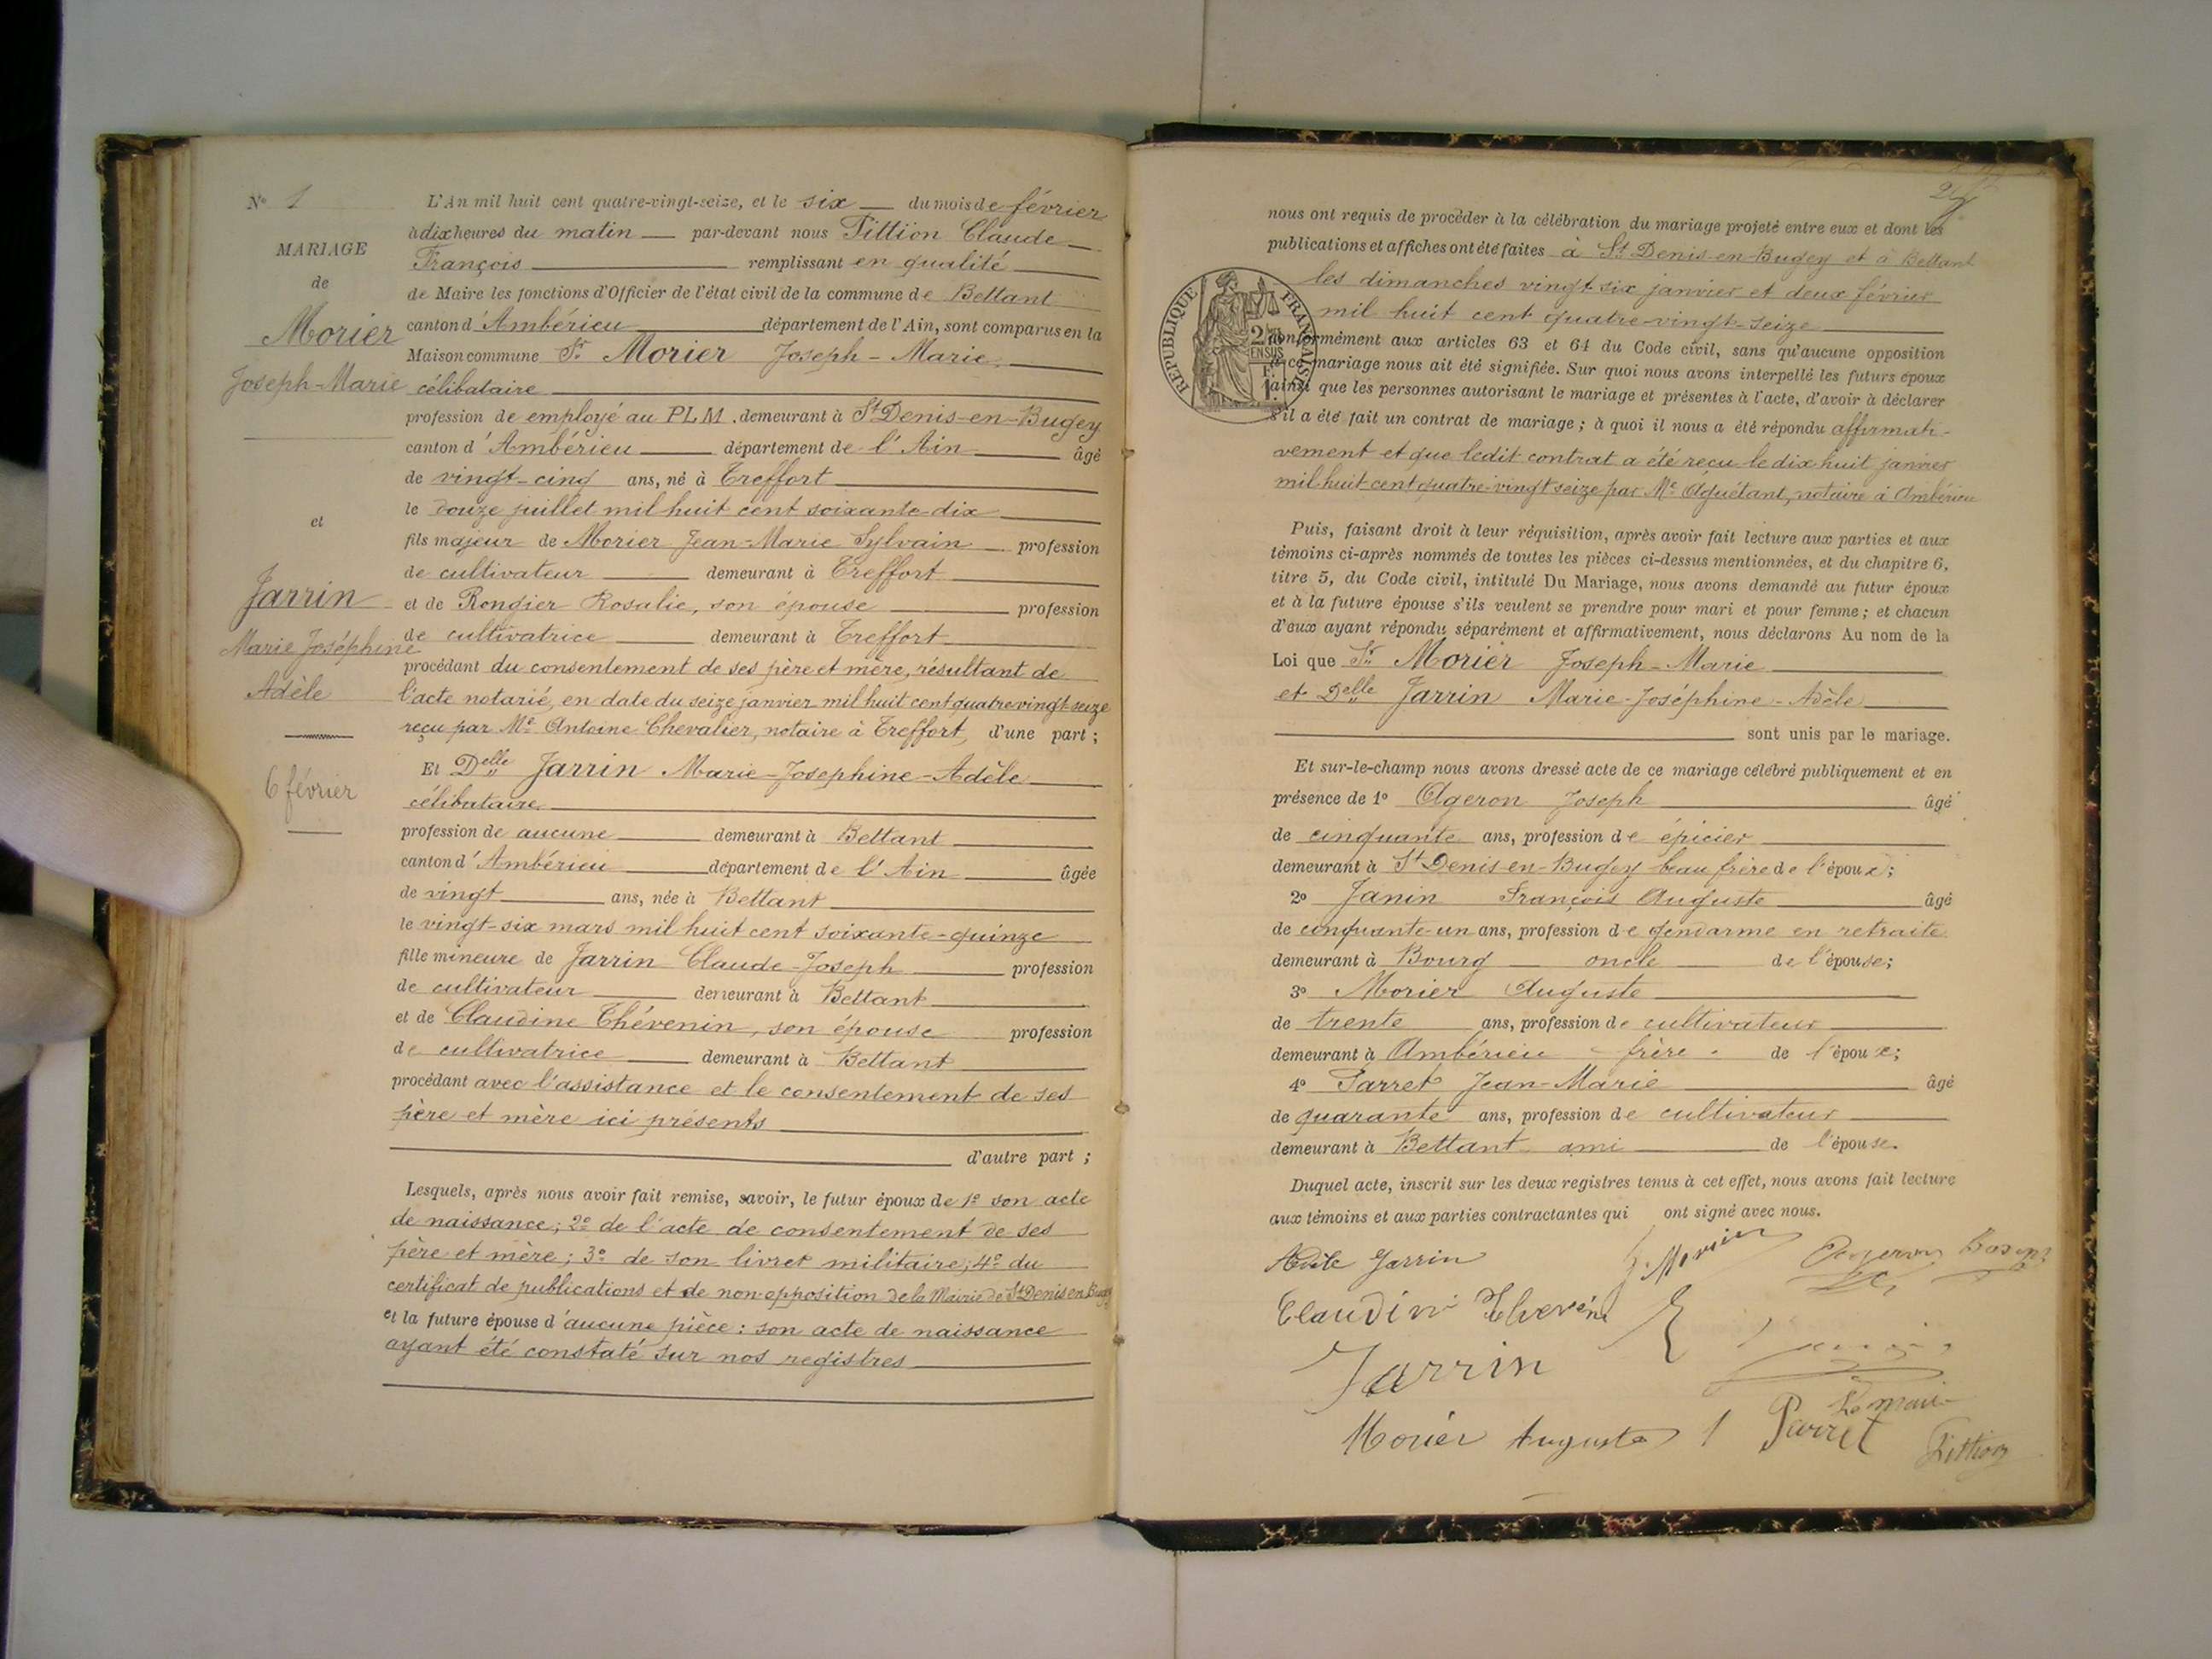 N° 1
MARIAGE
de
Morier
Joseph-Marie
et
Jarrin
Marie Joséphine
Adèle
6 février
L'An mil huit cent quatre-vingt-seize, et le six du mois de février
à dix heures du matin par-devant nous Tittion Claude
François remplissant en qualité
de Maire les fonctions d'Officier de l'état civil de la commune de Bettant
canton d'Ambérieu département de l'Ain, sont comparus en la
Maison commune Sr. Morier Joseph-Marie
célibataire
profession de employé au PLM. demeurant à St Denis-en-Bugey
canton d'Ambérieu département de l'Ain âgé
de vingt-cinq ans, né à Treffort
le douze juillet mil huit cent soixante-dix
fils majeur de Morier Jean-Marie Sylvain profession
de cultivateur demeurant à Treffort
et de Rongier Rosalie, son épouse profession
de cultivatrice demeurant à Treffort
procédant du consentement de ses père et mère, résultant de
l'acte notarié, en date du seize janvier mil huit cent quatre vingt seize
reçu par Me Antoine Chevalier, notaire à Treffort, d'une part ;
Et Delle Jarrin Marie-Josephine-Adèle
célibataire
profession de aucune demeurant à Bettant
canton d'Ambérieu département de l'Ain âgée
de vingt ans, née à Bettant
le vingt-six mars mil huit cent soixante-quinze
fille mineure de Jarrin Claude-Joseph profession
de cultivateur demeurant à Bettant
et de Claudine Thévenin, son épouse profession
de cultivatrice demeurant à Bettant
procédant avec l'assistance et le consentement de ses
père et mère ici présents
d'autre part ;
Lesquels, après nous avoir fait remise, savoir, le futur époux de 1° son acte
de naissance ; 2° de l'acte de consentement de ses
père et mère ; 3° de son livret militaire ; 4° du
certificat de publications et de non-opposition de la Mairie de St Denis en Bugey
et la future épouse d'aucune pièce : son acte de naissance
ayant été constaté sur nos registres
nous ont requis de procéder à la célébration du mariage projeté entre eux et dont les
publications et affiches ont été faites à St. Denis-en-Bugey et à Bettant
les dimanches vingt-six janvier et deux février
mil huit cent quatre-vingt-seize
RÉPUBLIQUE FRANÇAISE
conformément aux articles 63 et 64 du Code civil, sans qu'aucune opposition
à ce mariage nous ait été signifiée. Sur quoi nous avons interpellé les futurs époux
ainsi que les personnes autorisant le mariage et présentes à l'acte, d'avoir à déclarer
s'il a été fait un contrat de mariage ; à quoi il nous a été répondu affirmati-
vement et que ledit contrat a été reçu le dix huit janvier
mil-huit-cent quatre-vingt seize par Me Aguétant, notaire à Ambérieu
Puis, faisant droit à leur réquisition, après avoir fait lecture aux parties et aux
témoins ci-après nommés de toutes les pièces ci-dessus mentionnées, et du chapitre 6,
titre 5, du Code civil, intitulé Du Mariage, nous avons demandé au futur époux
et à la future épouse s'ils veulent se prendre pour mari et pour femme ; et chacun
d'eux ayant répondu séparément et affirmativement, nous déclarons Au nom de la
Loi que Sr Morier Joseph-Marie
et Delle Jarrin Marie-Joséphine-Adèle
sont unis par le mariage.
Et sur-le-champ nous avons dressé acte de ce mariage célébré publiquement et en
présence de 1° Ogeron Joseph âgé
de cinquante ans, profession de épicier
demeurant à St Denis-en-Bugey beau frère de l'époux ;
2° Janin François Auguste âgé
de cinquante-un ans, profession de gendarme en retraite
demeurant à Bourg oncle de l'épouse ;
3° Morier Auguste
de trente ans, profession de cultivateur
demeurant à Ambérieu frère de l'époux ;
4° Parret Jean-Marie âgé
de quarante ans, profession de cultivateur
demeurant à Bettant ami de l'épouse.
Duquel acte, inscrit sur les deux registres tenus à cet effet, nous avons fait lecture
aux témoins et aux parties contractantes qui ont signé avec nous.
Adèle Jarrin
J. Morier
Claudine Thevenin
Jarrin
Le maire
Morier Auguste
Parret
Tittion